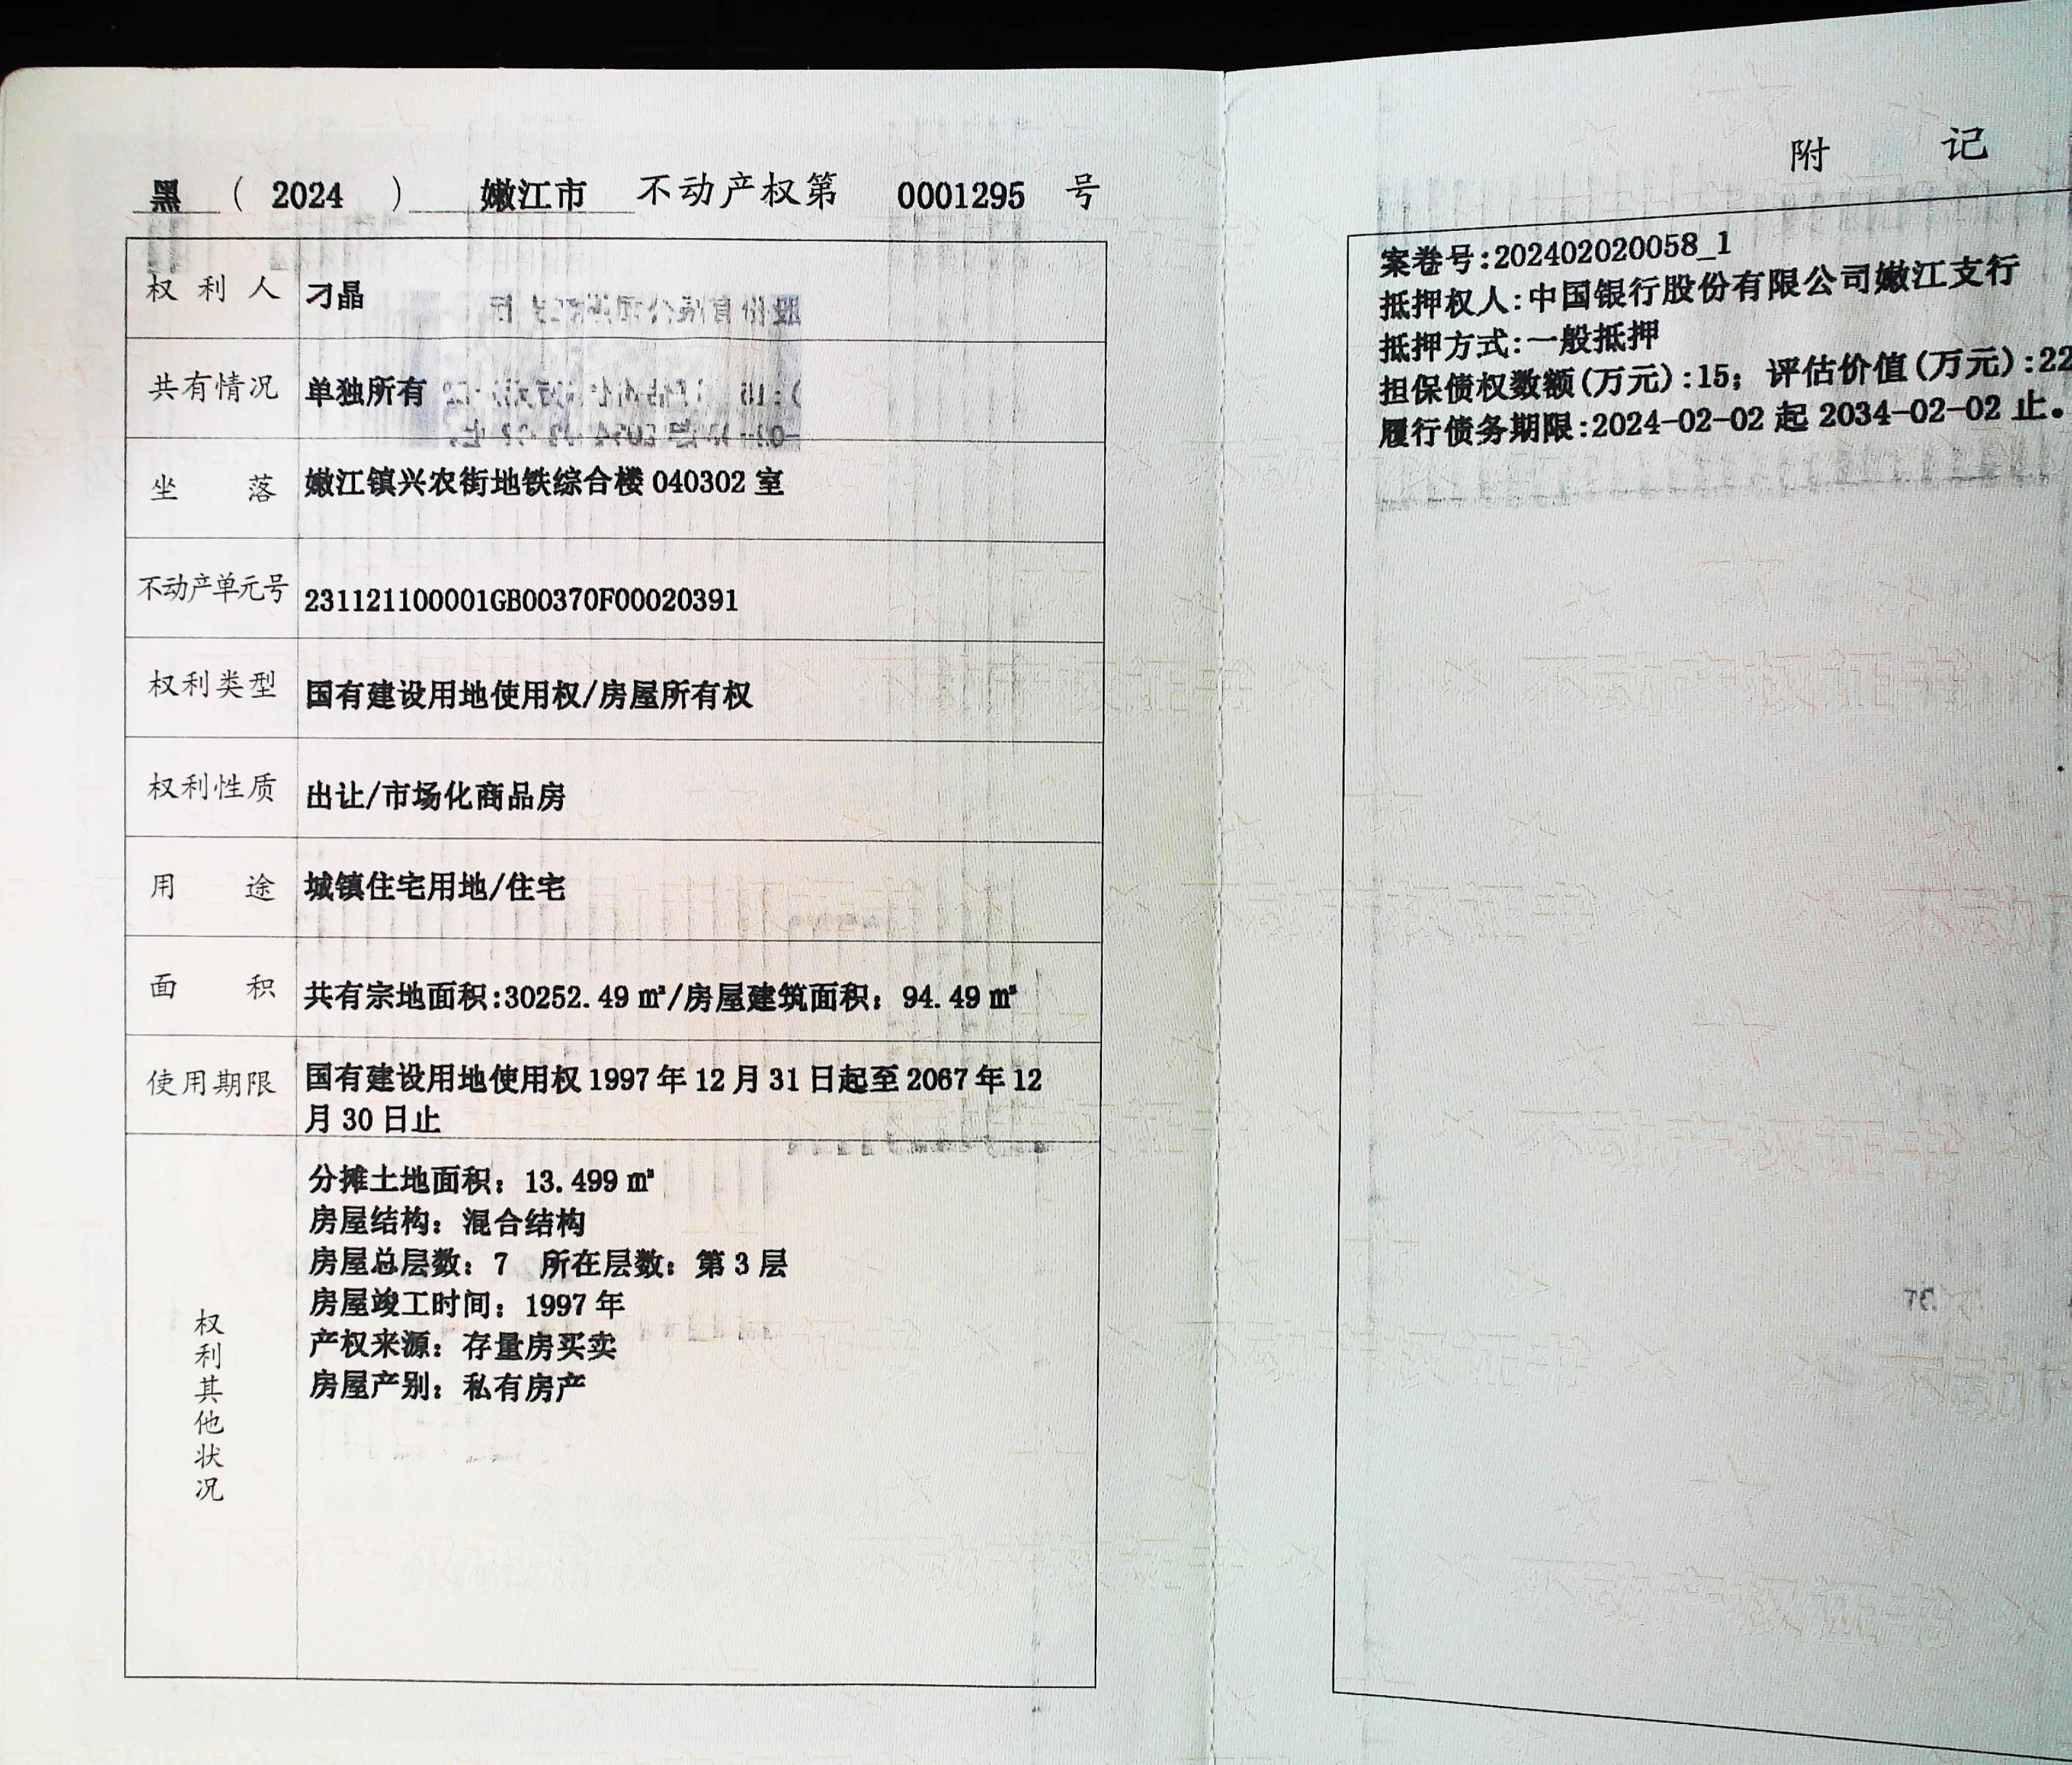 黑 ( 2024 ) 嫩江市 不动产权第 0001295 号
权利人 刁晶
共有情况 单独所有
坐落 嫩江镇兴农街地铁综合楼 040302 室
不动产单元号 231121100001GB00370F00020391
权利类型 国有建设用地使用权/房屋所有权
权利性质 出让/市场化商品房
用途 城镇住宅用地/住宅
面积 共有宗地面积:30252.49 ㎡/房屋建筑面积：94.49 ㎡
使用期限 国有建设用地使用权 1997 年 12 月 31 日起至 2067 年 12
月 30 日止
权利其他状况
分摊土地面积：13.499 ㎡
房屋结构：混合结构
房屋总层数：7 所在层数：第 3 层
房屋竣工时间：1997 年
产权来源：存量房买卖
房屋产别：私有房产
附记
案卷号:202402020058_1
抵押权人:中国银行股份有限公司嫩江支行
抵押方式:一般抵押
担保债权数额(万元):15；评估价值(万元):22
履行债务期限:2024-02-02 起 2034-02-02 止。